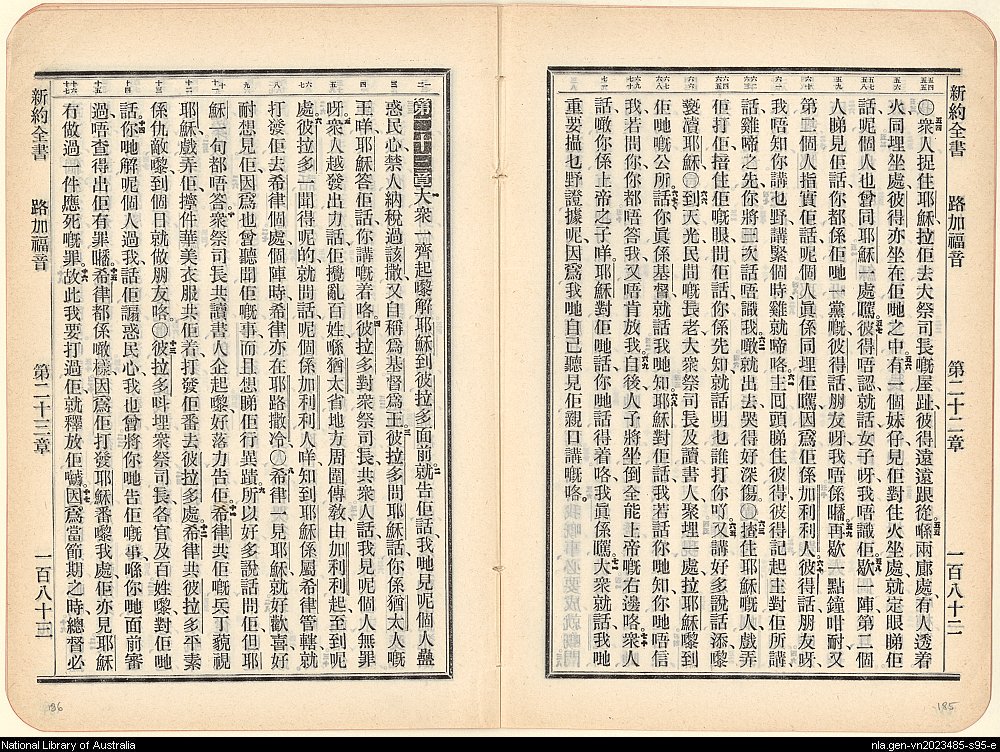 新約全書 路加福音 第二十二章 一百八十二
衆人捉住耶穌拉佢去大祭司長嘅屋趾彼得遠遠跟從喺兩廊處有人透着
火同埋坐處彼得亦坐在佢哋之中有一個妹仔見佢對住火坐處就定眼睇佢
話呢個人也曾同耶穌一處嘅彼得唔認就話女子呀我唔識佢歇一陣第二個
人睇見佢話你都係佢哋一黨嘅彼得話朋友呀我唔係嚹再歇一點鐘咁耐又
第二個人指實佢話呢個人眞係同埋佢嘅因爲佢係加利利人彼得話朋友呀
我唔知你講乜野講緊個時雞就啼咯主囘頭睇住彼得彼得記起主對佢所講
話雞啼之先你將三次話唔識我噉就出去哭得好深傷揸住耶穌嘅人戲弄
佢打佢揞住佢嘅眼問佢話你係先知就話明乜誰打你吖又講好多說話添嚟到
褻瀆耶穌到天光民間嘅長老大衆祭司長及讀書人聚埋一處拉耶穌嚟到
佢哋嘅公所話你眞係基督就話我哋知耶穌對佢話我若話你哋知你哋唔信
我若問你你都唔答我又唔肯放我自後人子將坐倒全能上帝嘅右邊咯衆人
話噉你係上帝之子咩耶穌對佢哋話你哋話得着咯我眞係嘅大衆就話我哋
重要攝乜野證據呢因爲我哋自己聽見佢親口講嘅咯
第二十三章大衆一齊起嚟解耶穌到彼拉多面前就告佢話我哋見呢個人蠱
惑民心禁人納稅過該撒又自稱爲基督爲王彼拉多問耶穌話你係猶太人嘅
王咩耶穌答佢話你講嘅着咯彼拉多對衆祭司長共衆人話我見呢個人無罪
呀衆人越發出力話佢攪亂百姓喺猶太省地方周圍傳敎由加利利起至到呢
處彼拉多一聞得呢的就問話呢個係加利利人咩知到耶穌係屬希律管轄就
打發佢去希律個處個陣時希律亦在耶路撒冷希律一見耶穌就好歡喜好
耐想見佢因爲也曾聽聞佢嘅事而且想睇佢行異蹟所以好多說話問佢但耶
穌一句都唔答衆祭司長共讀書人企起嚟好落力告佢希律共佢嘅兵丁藐視
耶穌戲弄佢擰件華美衣服共佢着打發佢番去彼拉多處希律共彼拉多平素
係仇敵嚟到個日就做朋友咯彼拉多呌埋衆祭司長各官及百姓嚟對佢哋
話你哋解呢個人過我話佢謅惑民心我也曾將你哋告佢嘅事喺你哋面前審
過唔查得出佢有罪嚹希律都係噉樣因爲佢打發耶穌番嚟我處佢亦見耶穌
冇做過一件應死嘅罪故此我要打過佢就釋放佢嚹因爲當節期之時總督必
新約全書 路加福音 第二十三章 一百八十三
196
185
National Library of Australia
nla.gen-vn2023485-s95-e